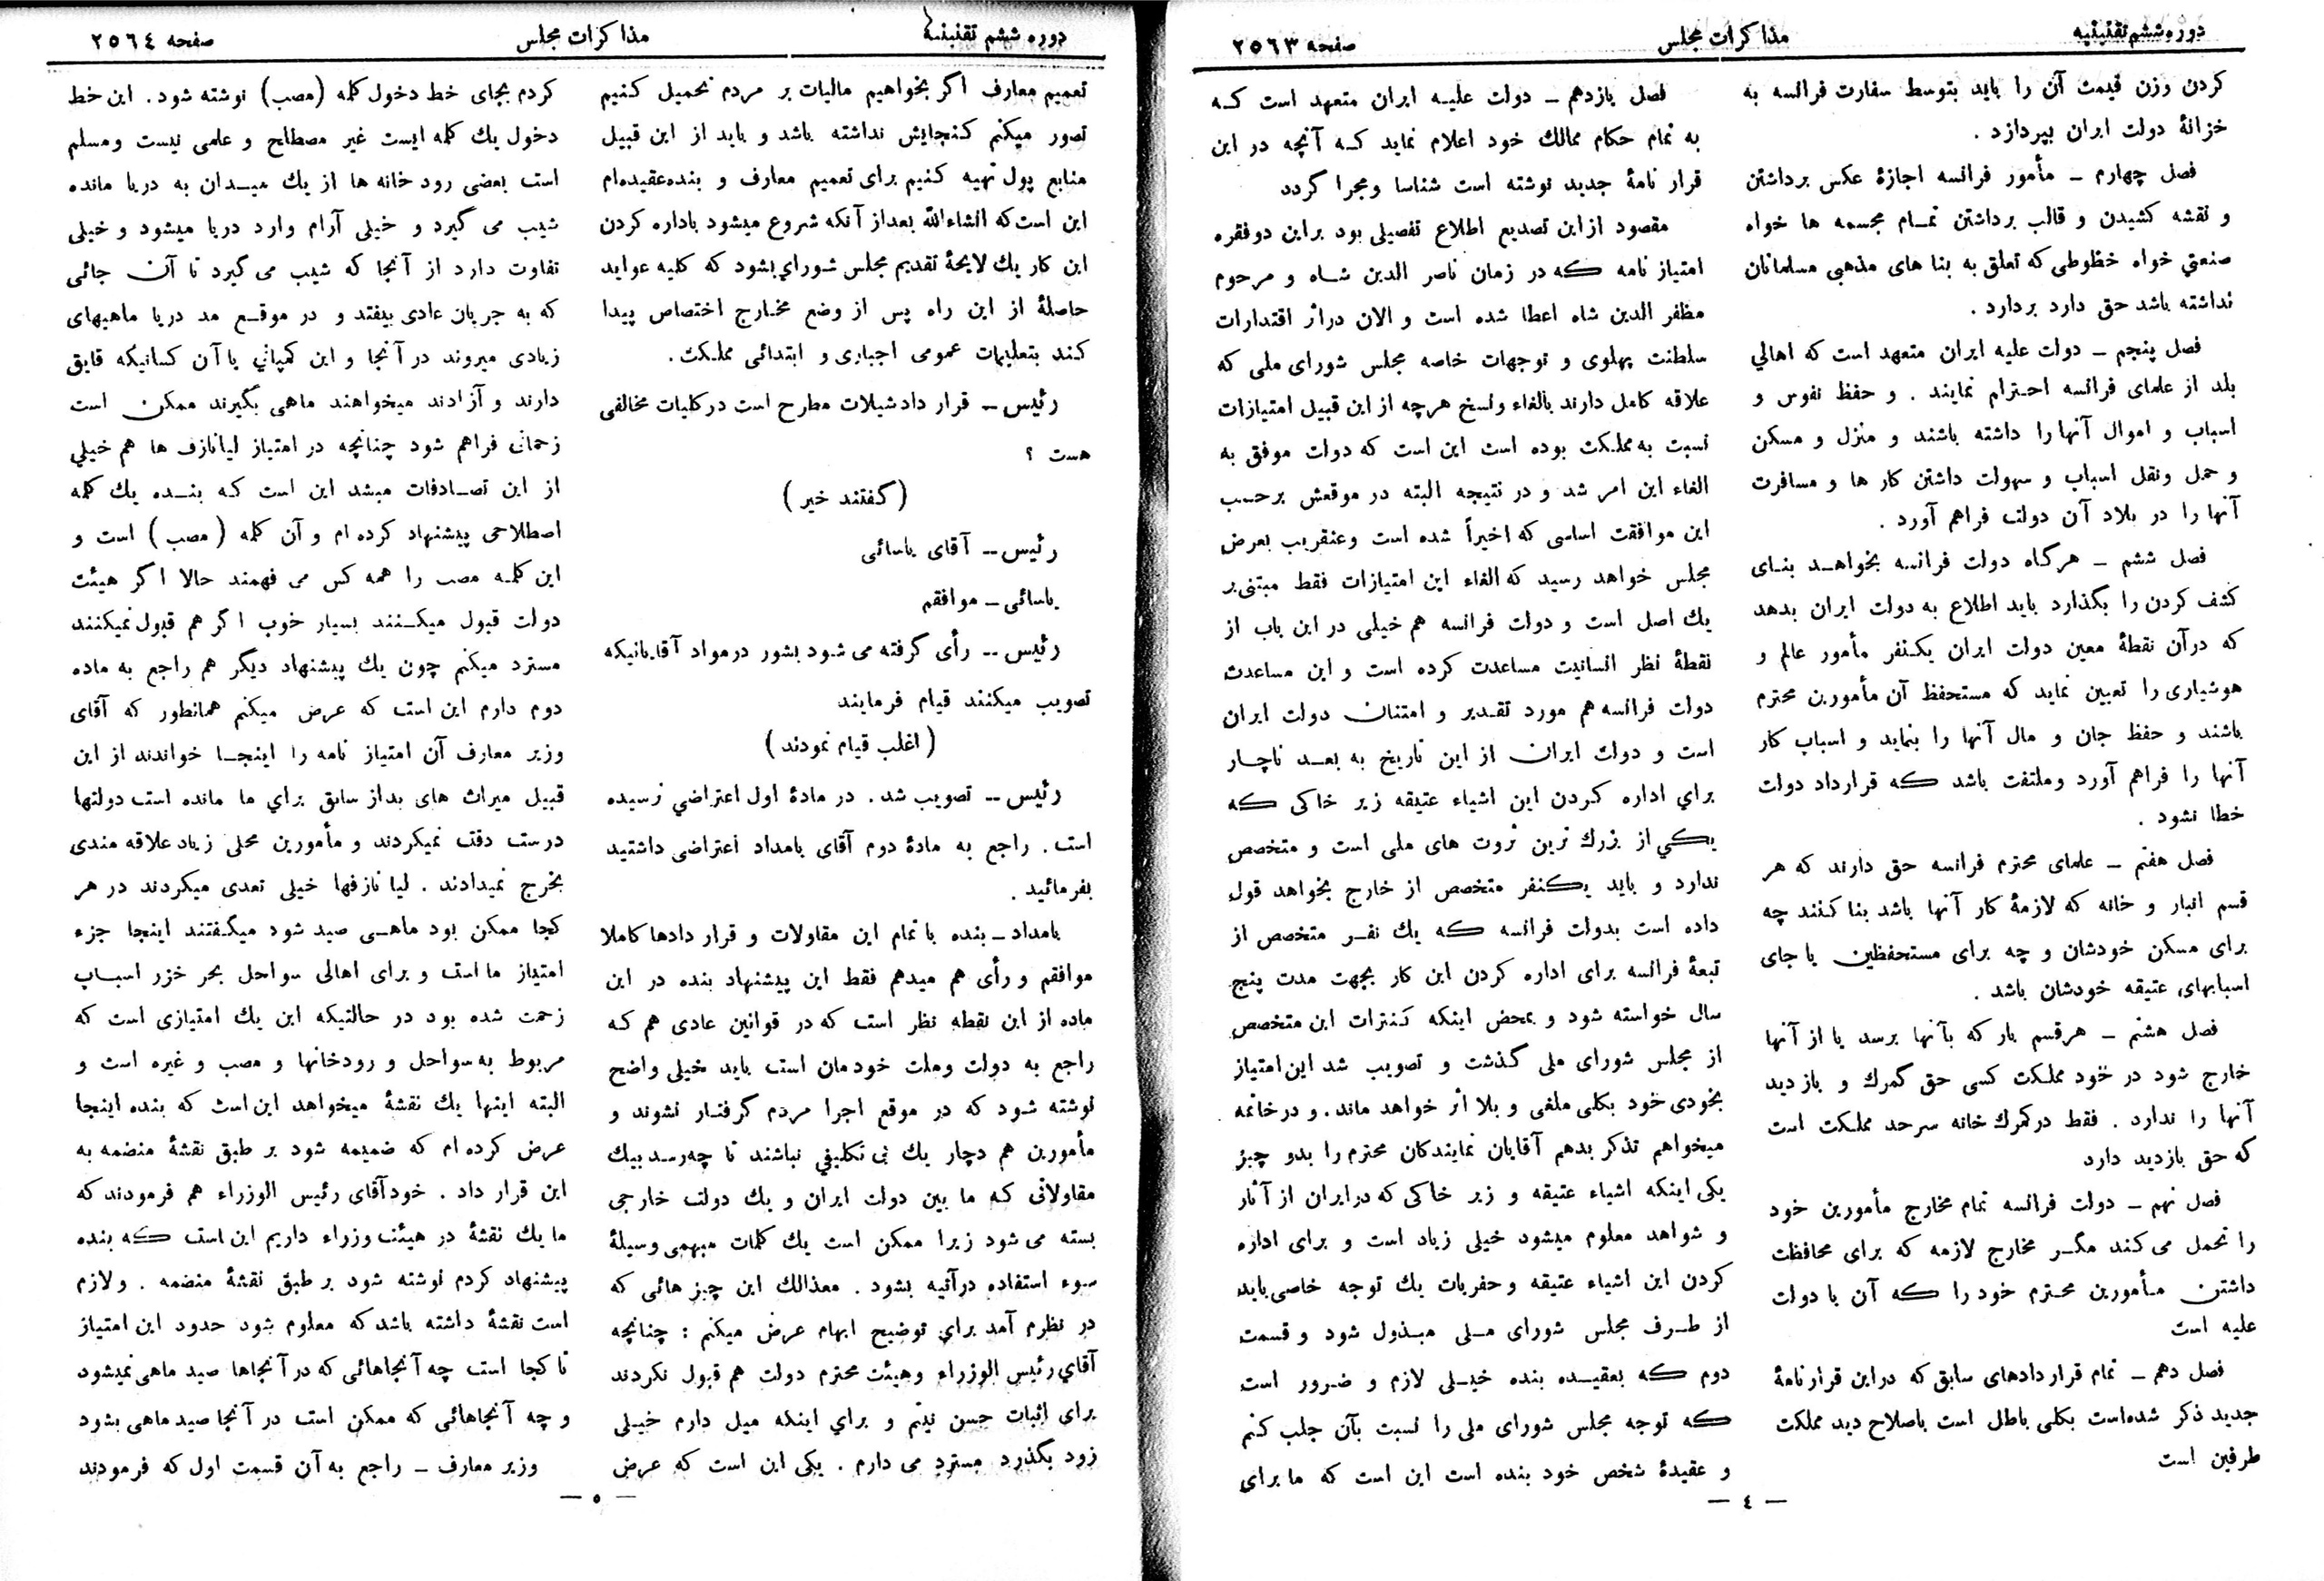 دوره ششم تقنینیه
مذاکرات مجلس
صفحه ۲۵۶۳
کردن وزن قیمت آن را باید بتوسط سفارت فرانسه به
خزانهٔ دولت ایران بپردازد .
فصل چهارم ــ مأمور فرانسه اجازهٔ عکس برداشتن
و نقشه کشیدن و قالب برداشتن تمام مجسمه ها خواه
صنعتی خواه خطوطی که تعلق به بنا های مذهبی مسلمانان
نداشته باشد حق دارد بردارد .
فصل پنجم ــ دولت علیه ایران متعهد است که اهالی
بلد از علمای فرانسه احترام نمایند . و حفظ نفوس و
اسباب و اموال آنها را داشته باشند و منزل و مسکن
و حمل ونقل اسباب و سهولت داشتن کار ها و مسافرت
آنها را در بلاد آن دولت فراهم آورد .
فصل ششم ــ هرگاه دولت فرانسه بخواهد بنای
کشف کردن را بگذارد باید اطلاع به دولت ایران بدهد
که درآن نقطهٔ معین دولت ایران یکنفر مأمور عالم و
هوشیاری را تعیین نماید که مستحفظ آن مأمورین محترم
باشند و حفظ جان و مال آنها را بنماید و اسباب کار
آنها را فراهم آورد وملتفت باشد که قرارداد دولت
خطا نشود .
فصل هفتم ــ علمای محترم فرانسه حق دارند که هر
قسم انبار و خانه که لازمهٔ کار آنها باشد بنا کنند چه
برای مسکن خودشان و چه برای مستحفظین یا جای
اسبابهای عتیقه خودشان باشد .
فصل هشتم ــ هرقسم بار که بآنها برسد یا از آنها
خارج شود در خود مملکت کسی حق گمرک و بازدید
آنها را ندارد . فقط درگمرک خانه سرحد مملکت است
که حق بازدید دارد
فصل نهم ــ دولت فرانسه تمام مخارج مأمورین خود
را تحمل می کند مگر مخارج لازمه که برای محافظت
داشتن مأمورین محترم خود را که آن با دولت
علیه است
فصل دهم ــ تمام قراردادهای سابق که دراین قرارنامهٔ
جدید ذکر شده‌است بکلی باطل است باصلاح دید مملکت
طرفین است
فصل یازدهم ــ دولت علیه ایران متعهد است که
به تمام حکام ممالک خود اعلام نماید که آنچه در این
قرار نامهٔ جدید نوشته است شناسا ومجرا گردد
مقصود ازاین تصدیع اطلاع تفصیلی بود براین دوفقره
امتیاز نامه که در زمان ناصر الدین شاه و مرحوم
مظفر الدین شاه اعطا شده است و الان دراثر اقتدارات
سلطنت پهلوی و توجهات خاصه مجلس شورای ملی که
علاقه کامل دارند بالغاء ونسخ هرچه از این قبیل امتیازات
نسبت به مملکت بوده است این است که دولت موفق به
الغاء این امر شد و در نتیجه البته در موقعش برحسب
این موافقت اساسی که اخیراً شده است وعنقریب بعرض
مجلس خواهد رسید که الغاء این امتیازات فقط مبتنی بر
یک اصل است و دولت فرانسه هم خیلی در این باب از
نقطهٔ نظر انسانیت مساعدت کرده است و این مساعدت
دولت فرانسه هم مورد تقدیر و امتنان دولت ایران
است و دولت ایران از این تاریخ به بعد ناچار
برای اداره کردن این اشیاء عتیقه زیر خاکی که
یکی از بزرگ ترین ثروت های ملی است و متخصص
ندارد و باید یکنفر متخصص از خارج بخواهد قول
داده است بدولت فرانسه که یک نفر متخصص از
تبعهٔ فرانسه برای اداره کردن این کار بجهت مدت پنج
سال خواسته شود و بمحض اینکه کنترات این متخصص
از مجلس شورای ملی گذشت و تصویب شد این امتیاز
بخودی خود بکلی ملغی و بلا اثر خواهد ماند . و درخاتمه
میخواهم تذکر بدهم آقایان نمایندگان محترم را بدو چیز
یکی اینکه اشیاء عتیقه و زیر خاکی که درایران از آثار
و شواهد معلوم میشود خیلی زیاد است و برای اداره
کردن این اشیاء عتیقه وحفریات یک توجه خاصی باید
از طرف مجلس شورای ملی مبذول شود و قسمت
دوم که بعقیده بنده خیلی لازم و ضرور است
که توجه مجلس شورای ملی را نسبت بآن جلب کنم
و عقیدهٔ شخص خود بنده است این است که ما برای
ــ ٤ ــ
دوره ششم تقنینیه
مذاکرات مجلس
صفحه ۲۵٦٤
تعمیم معارف اگر بخواهیم مالیات بر مردم تحمیل کنیم
تصور میکنم گنجایش نداشته باشد و باید از این قبیل
منابع پول تهیه کنیم برای تعمیم معارف و بنده‌عقیده‌ام
این است‌که انشاءالله بعداز آنکه شروع میشود باداره کردن
این کار یک لایحهٔ تقدیم مجلس شورای بشود که کلیه عواید
حاصلهٔ از این راه پس از وضع مخارج اختصاص پیدا
کند بتعلیمات عمومی اجباری و ابتدائی مملکت.
رئیس ــ قرار داد شیلات مطرح است درکلیات مخالفی
هست ؟
( گفتند خیر )
رئیس ــ آقای یاسائی
یاسائی ــ موافقم
رئیس ــ رأی گرفته می شود بشور درمواد آقایانیکه
تصویب میکنند قیام فرمایند
( اغلب قیام نمودند )
رئیس ــ تصویب شد . در مادهٔ اول اعتراضی نرسیده
است . راجع به مادهٔ دوم آقای بامداد اعتراضی داشتید
بفرمائید .
بامداد ــ بنده با تمام این مقاولات و قرار دادها کاملا
موافقم و رأی هم میدهم فقط این پیشنهاد بنده در این
ماده از این نقطه نظر است که در قوانین عادی هم که
راجع به دولت وملت خودمان است باید خیلی واضح
نوشته شود که در موقع اجرا مردم گرفتار نشوند و
مأمورین هم دچار یک بی تکلیفی نباشند تا چه‌رسد بیک
مقاولاتی که ما بین دولت ایران و یک دولت خارجی
بسته می شود زیرا ممکن است یک کلمات مبهمی وسیلهٔ
سوء استفاده درآتیه بشود . معذالک این چیز هائی که
در نظرم آمد برای توضیح ابهام عرض میکنم : چنانچه
آقای رئیس الوزراء وهیئت محترم دولت هم قبول نکردند
برای اثبات حسن نیتم و برای اینکه میل دارم خیلی
زود بگذرد مسترد می دارم . یکی این است که عرض
کردم بجای خط دخول کلمه (مصب) نوشته شود . این خط
دخول یک کلمه ایست غیر مصطلح و علمی نیست ومسلم
است بعضی رود خانه ها از یک میدان به دریا مانده
شیب می گیرد و خیلی آرام وارد دریا میشود و خیلی
تفاوت دارد از آنجا که شیب می گیرد تا آن جائی
که به جریان عادی بیفتد و در موقع مد دریا ماهیهای
زیادی میروند درآنجا و این کمپانی یا آن کسانیکه قایق
دارند و آزادند میخواهند ماهی بگیرند ممکن است
زحماتی فراهم شود چنانچه در امتیاز لیانازف ها هم خیلی
از این تصادفات میشد این است که بنده یک کلمه
اصطلاحی پیشنهاد کرده ام و آن کلمه ( مصب ) است و
این کلمه مصب را همه کس می فهمند حالا اگر هیئت
دولت قبول میکنند بسیار خوب اگر هم قبول نمیکنند
مسترد میکنم چون یک پیشنهاد دیگر هم راجع به ماده
دوم دارم این است که عرض میکنم همانطور که آقای
وزیر معارف آن امتیاز نامه را اینجا خواندند از این
قبیل میراث های بداز سابق برای ما مانده است دولتها
درست دقت نمیکردند و مأمورین محلی زیاد علاقه مندی
بخرج نمیدادند . لیا نازفها خیلی تعدی میکردند در هر
کجا ممکن بود ماهی صید شود میگفتند اینجا جزء
امتیاز ما است و برای اهالی سواحل بحر خزر اسباب
زحمت شده بود در حالتیکه این یک امتیازی است که
مربوط به سواحل و رودخانها و مصب و غیره است و
البته اینها یک نقشهٔ میخواهد این است که بنده اینجا
عرض کرده ام که ضمیمه شود بر طبق نقشهٔ منضمه به
این قرار داد . خودآقای رئیس الوزراء هم فرمودند که
ما یک نقشهٔ در هیئت وزراء داریم این است که بنده
پیشنهاد کردم نوشته شود بر طبق نقشهٔ منضمه . ولازم
است نقشهٔ داشته باشد که معلوم شود حدود این امتیاز
تا کجا است چه آنجاهائی که درآنجاها صید ماهی نمیشود
و چه آنجاهائی که ممکن است در آنجا صید ماهی بشود
وزیر معارف ــ راجع به آن قسمت اول که فرمودند
ــ ٥ ــ